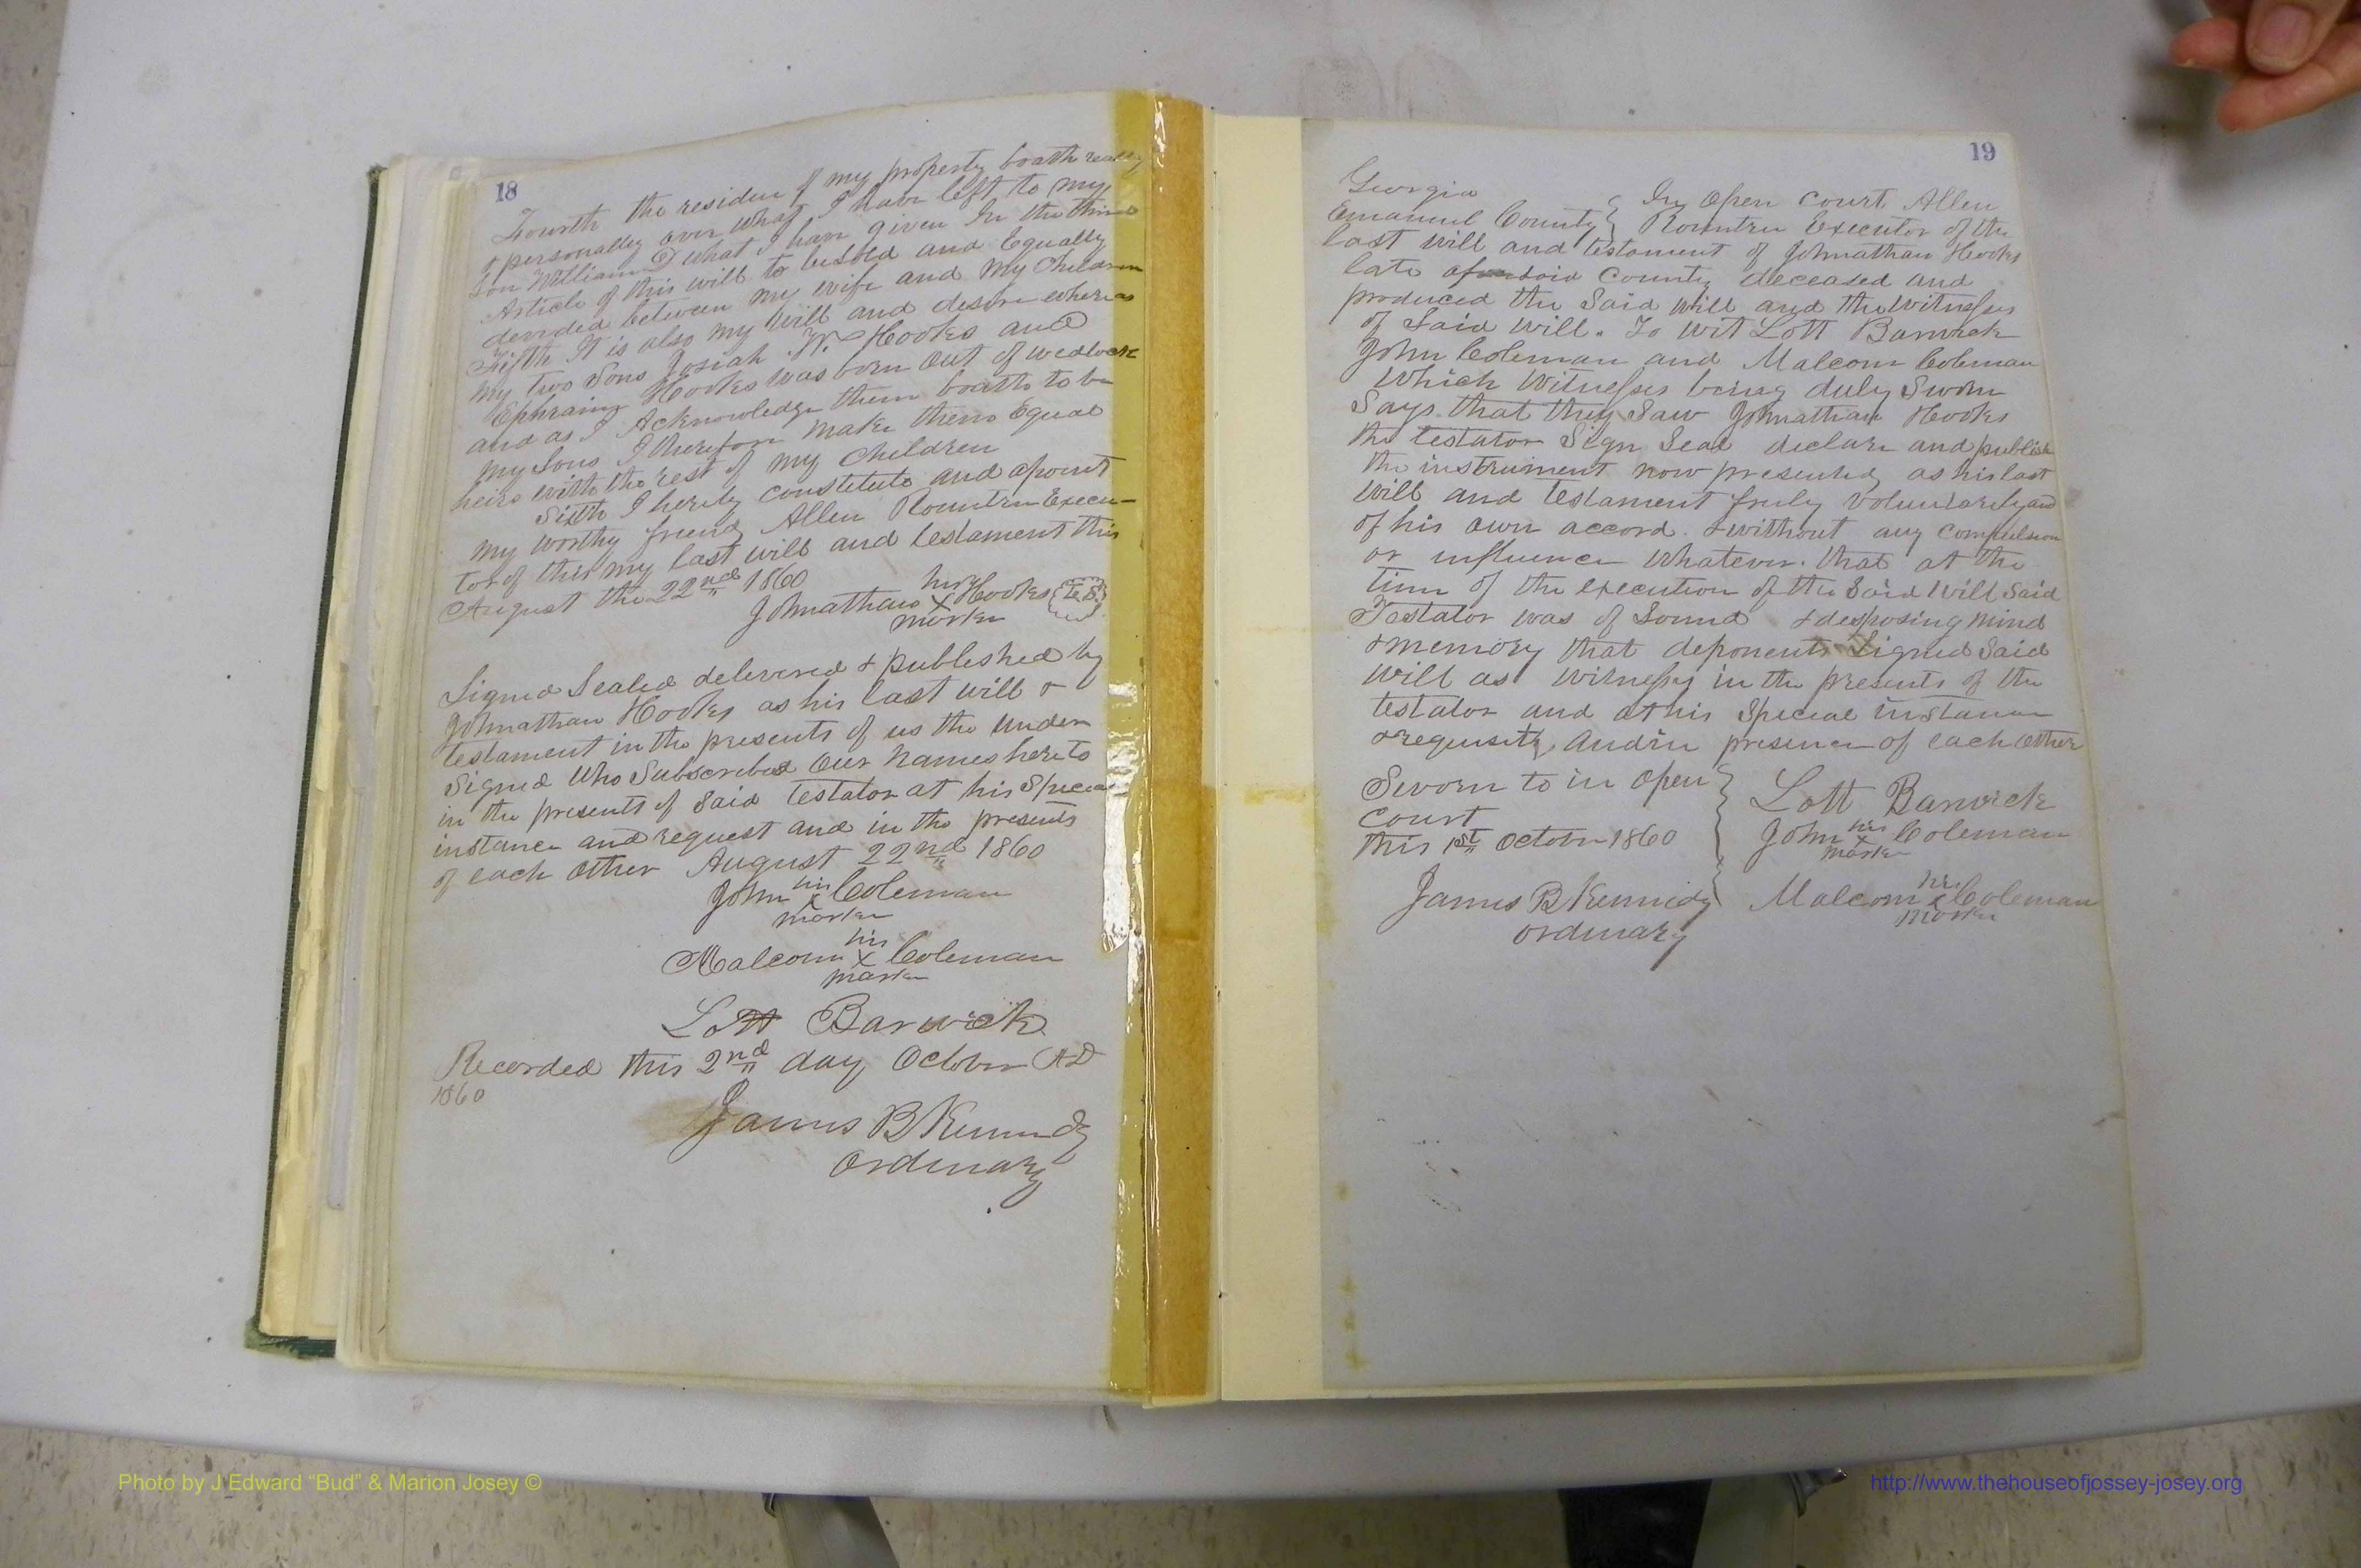 18
Fourth the residue of my property boath really
& personalley over what I have left to my
Son William D what I have given In the third
Article of this will to be Sold and Equally
devided between my wife and My Children
Fifth It is also my Will and desire whereas
my two Sons Josiah W Hooks and
Ephraim Hooks was born out of wedlock
and as I Acknowledge them boath to be
my Sons I therefore make them Equal
heirs with the rest of my Children
Sixth I hereby constitute and apoint
my worthy friend Allen Rountree Execu-
tor of this my last will and testament this
August the 22nd 1860
his
Johnathan X Hooks L.S.
mark
Signed Sealed delivered & published by
Johnathan Hooks as his last will &
testament in the presents of us the under
Signed Who Subscribed Our names hereto
in the presents of Said testator at his Special
instance and request and in the presents
of each other August 22nd 1860
his
John X Coleman
mark
his
Malcom X Coleman
mark
Lott Barwick
Recorded this 2nd day October AD
1860
James B Kennedy
Ordinary
19
Georgia
Emanuel County } In Open Court Allen
Rountree Executor of the
last Will and testament of Johnathan Hooks
late aforesaid County deceased and
produced the Said Will and the Witnesses
of Said Will. To wit Lott Barwick
John Coleman and Malcom Coleman
Which Witnesses being duly Sworn
Says that they Saw Johnathan Hooks
the testator Sign Seal declare and publish
the instrument now presented as his last
Will and testament freely Voluntarily and
of his own accord. & without any compulsion
or influence Whatever. that at the
time of the execution of the Said Will Said
Testator was of Sound & desposing mind
& memory that deponents Signed Said
Will as Witnesses in the presents of the
testator and at his Special instance
& request, And in presence of each other
Sworn to in Open
Court
this 1st October 1860
James B Kennedy
Ordinary
Lott Barwick
his
John X Coleman
mark
his
Malcom X Coleman
mark
Photo by J Edward “Bud” & Marion Josey ©
http://www.thehouseofjossey-josey.org